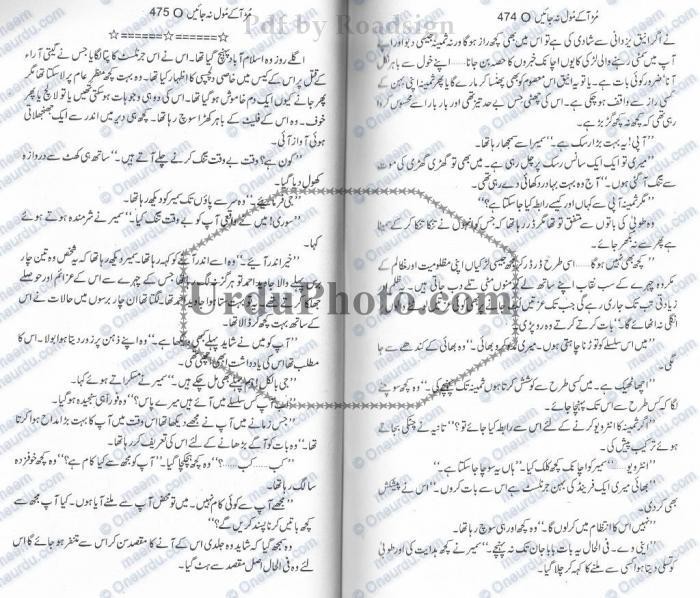 مُڑ آ کے مُول نہ جائیں O 474
نے اگر انیق یزدانی سے شادی کی ہے تو اس میں بھی کچھ راز ہو گا ورنہ ثمینہ جیسی دبو اور اپنے
آپ میں گم رہنے والی لڑکی کا یوں اچانک خبروں کا حصہ بن جانا...... اپنے خول سے باہر نکل
آنا ضرور کوئی بات ہے۔ یا تو انیق اس معصوم کو بھی پھنسا کر مارے گا یا پھر ثمینہ اپنی بہن کے
کسی راز سے واقف ہو چکی ہے۔ اس کی چھٹی حس بے حد تیز تھی اور بار بار اسے محسوس کروا
رہی تھی کہ کچھ نہ کچھ گڑبڑ ہے۔
’’آپی! یہ بہت بڑا رسک ہے۔‘‘ سمیر اسے سمجھا رہا تھا۔
’’میری تو ایک ایک سانس رسک پر چل رہی ہے۔ میں بھی تو گھڑی گھڑی کی موت
سے تنگ آ گئی ہوں۔‘‘ آج وہ بہت بہادر دکھائی دے رہی تھی۔
’’مگر ثمینہ آپی سے کہاں اور کیسے رابطہ کیا جا سکتا ہے؟‘‘
وہ طوبیٰ کی باتوں سے متفق تو تھا مگر ڈر رہا تھا کہ جس کو انہوں نے تنکا تنکا کر کے سمیٹا
ہے پھر سے نہ بکھر جائے۔
’’کچھ بھی نہیں ہو گا...... اسی طرح ڈر ڈر کر کچھ جیسی لڑکیاں اپنی مظلومیت اور ظالم کے
مکروہ چہرے کے سب نقاب اپنے ساتھ منوں مٹی تلے دب جاتی ہیں۔
زیادتی تب تک جاری رہے گی جب تک عزتیں
انگلی نہ اٹھائے گا۔‘‘ بات کرتے کرتے وہ رو پڑی
’’میں اس سلسلے کو توڑنا چاہتی ہوں۔ میری مدد کرو بھائی۔‘‘ وہ بھائی کے کندھے سے جا
لگی۔
’’اچھا ٹھیک ہے۔ میں کسی طرح سے کوشش کرتا ہوں ثمینہ تک پہنچنے کی۔‘‘ وہ کچھ سوچنے
لگا کہ کس طرح سے اس تک پہنچا جائے۔
’’اگر ثمینہ کا انٹرویو کرنے کے لئے اس سے رابطہ کیا جائے تو؟‘‘ تانیہ نے چٹکی بجاتے
ہوئے ترکیب پیش کی۔
’’انٹرویو......‘‘ سمیر کو اچانک کچھ کلک کیا۔ ’’ہاں یہ سوچا جا سکتا ہے۔‘‘
’’بھائی میری ایک فرینڈ کی بہن جرنلسٹ ہے اس سے بات کروں۔‘‘ اس نے پیشکش
بھی کر دی۔
’’نہیں اس کا انتظام میں کر لوں گا۔‘‘ وہ کچھ اور ہی سوچ رہا تھا۔
’’اپنی وے۔ فی الحال یہ بات بابا جان تک نہ پہنچے۔‘‘ سمیر نے کچھ ہدایت کی اور طوبیٰ
کو تسلی دیتا ہوا کسی سے ملنے کا کہہ کر چلا گیا۔
مُڑ آ کے مُول نہ جائیں O 475
======☆======☆======
اگلے روز وہ اسلام آباد پہنچ گیا تھا۔ اس نے اس جرنلسٹ کا پتا لگایا جس نے گیتی آراء
کے قتل پر اس کے کیس میں خاصی دلچسپی کا اظہار کیا تھا۔ وہ بہت کچھ منظر عام پر لا سکتا تھا مگر
پھر جانے کیوں ایک دم خاموش ہو گیا تھا۔ اس کی دو ہی وجوہات ہو سکتی تھیں یا تو لالچ یا پھر
خوف۔ وہ اس کے فلیٹ کے باہر کھڑا سوچ رہا تھا۔ کچھ ہی دیر میں اندر سے ایک جھنجھلائی
ہوئی آواز آئی۔
’’کون ہے؟ وقت بے وقت تنگ کرنے چلے آتے ہیں۔‘‘ ساتھ ہی کھٹ سے دروازہ
کھول دیا گیا۔
’’جی فرمائیے۔‘‘ وہ سر سے پاؤں تک سمیر کو دیکھ رہا تھا۔
’’سوری! میں نے واقعی آپ کو بے وقت تنگ کیا۔‘‘ سمیر نے شرمندہ ہوتے ہوئے
کہا۔
’’خیر اندر آئیے۔‘‘ وہ اسے اندر آنے کو کہہ رہا تھا۔ سمیر دیکھ رہا تھا کہ یہ شخص وہ تین چار
برس پہلے والا جاوید احمد تو ہرگز نہ لگ رہا تھا جس کے چہرے سے اس کے عزائم اور حوصلے
جھلکا کرتے لگتا تھا ان چار برسوں میں حالات نے اس
کے ساتھ بہت کچھ کر ڈالا تھا۔
’’آپ کو میں نے شاید پہلے کبھی دیکھا ہے۔‘‘ وہ اپنے ذہن پر زور دیتا ہوا بولا۔ اس کا
مطلب تھا اس کی یادداشت ابھی اچھی تھی۔
’’جی بالکل! ہم پہلے بھی مل چکے ہیں۔‘‘ سمیر نے مسکراتے ہوئے کہا۔
آپ کس سلسلے میں آئے ہیں میرے پاس؟‘‘ وہ فوراً ہی سنجیدہ ہو گیا۔
’’جس زمانے میں آپ نے مجھے دیکھا تھا اس وقت میں آپ کا بہت بڑا مداح ہوا کرتا
تھا۔‘‘ وہ بات کو آگے بڑھانے کے لئے اس کی تعریف کر رہا تھا۔
’’کب...... کب......؟‘‘ وہ کچھ ہچکچا گیا۔ ’’آپ کو مجھ سے کیا کام ہے؟‘‘ وہ کچھ خوفزدہ
سا لگ رہا تھا۔
’’مجھے آپ سے کوئی کام نہیں۔ میں تو محض آپ سے ملنے آیا ہوں۔ کیا آپ مجھ سے
کچھ باتیں کرنا پسند کریں گے؟‘‘
وہ سمجھ گیا کہ شاید وہ جلدی اس کے آنے کا مقصد سن کر اس سے متنفر ہو جائے گا اس
لئے وہ فی الحال اصل مقصد سے ہٹ گیا۔
Pdf by Roadsign
UrduPhoto.com
© Oneurdu.com